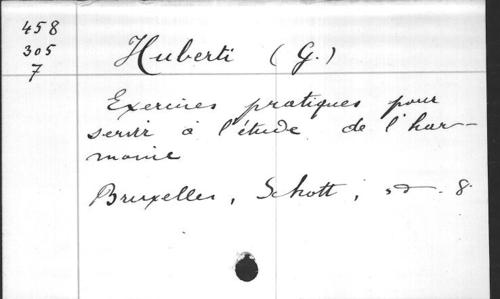 458
305
7
Huberti (G.)
Exercices pratiques pour
servir à l'étude de l'har-
monie
Bruxelles, Schott, sd. 8.